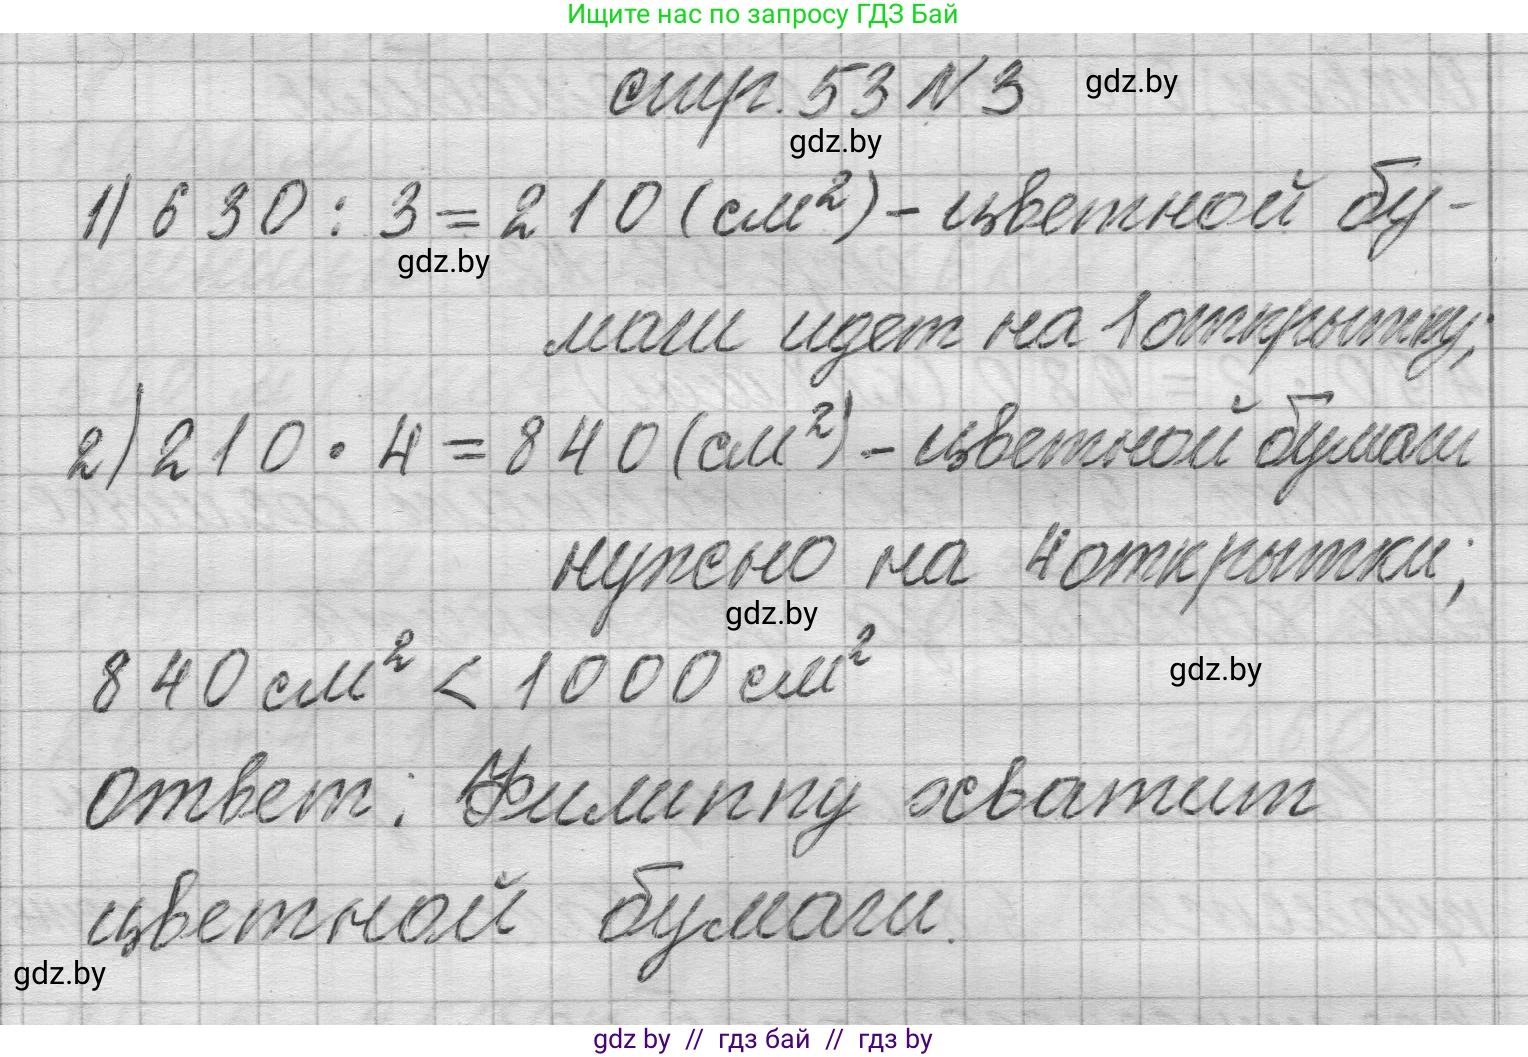 Ищите нас по запросу ГДЗ Бай
стр. 53 N 3
gdz.by
gdz.by
1) 630 : 3 = 210 (см²) – цветной бу-
gdz.by
маги идет на 1 открытку;
2) 210 · 4 = 840 (см²) – цветной бумаги
нужно на 4 открытки;
gdz.by
840 см² < 1000 см²
gdz.by
ответ: Филиппу хватит
цветной бумаги.
gdz.by
gdz by // гдз бай // гдз by